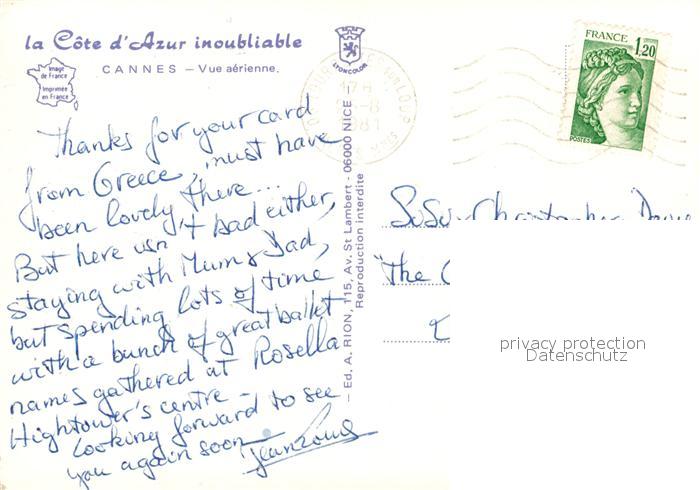 la Côte d'Azur inoubliable
CANNES – Vue aérienne.
Image
de France
Imprimée
en France
LYONCOLOR
FRANCE
1,20
POSTES
17H
-8
1981
Thanks for your card
from Greece, must have
been lovely there...
But here isn't bad either,
staying with Mum & Dad,
but spending lots of time
with a bunch of great ballet
names gathered at Rosella
Hightower's centre –
Looking forward to see
you again soon
Jean Louis
– Ed. A. RION, 115, Av. St Lambert - 06000 NICE
Reproduction interdite
Christopher
"The
privacy protection
Datenschutz